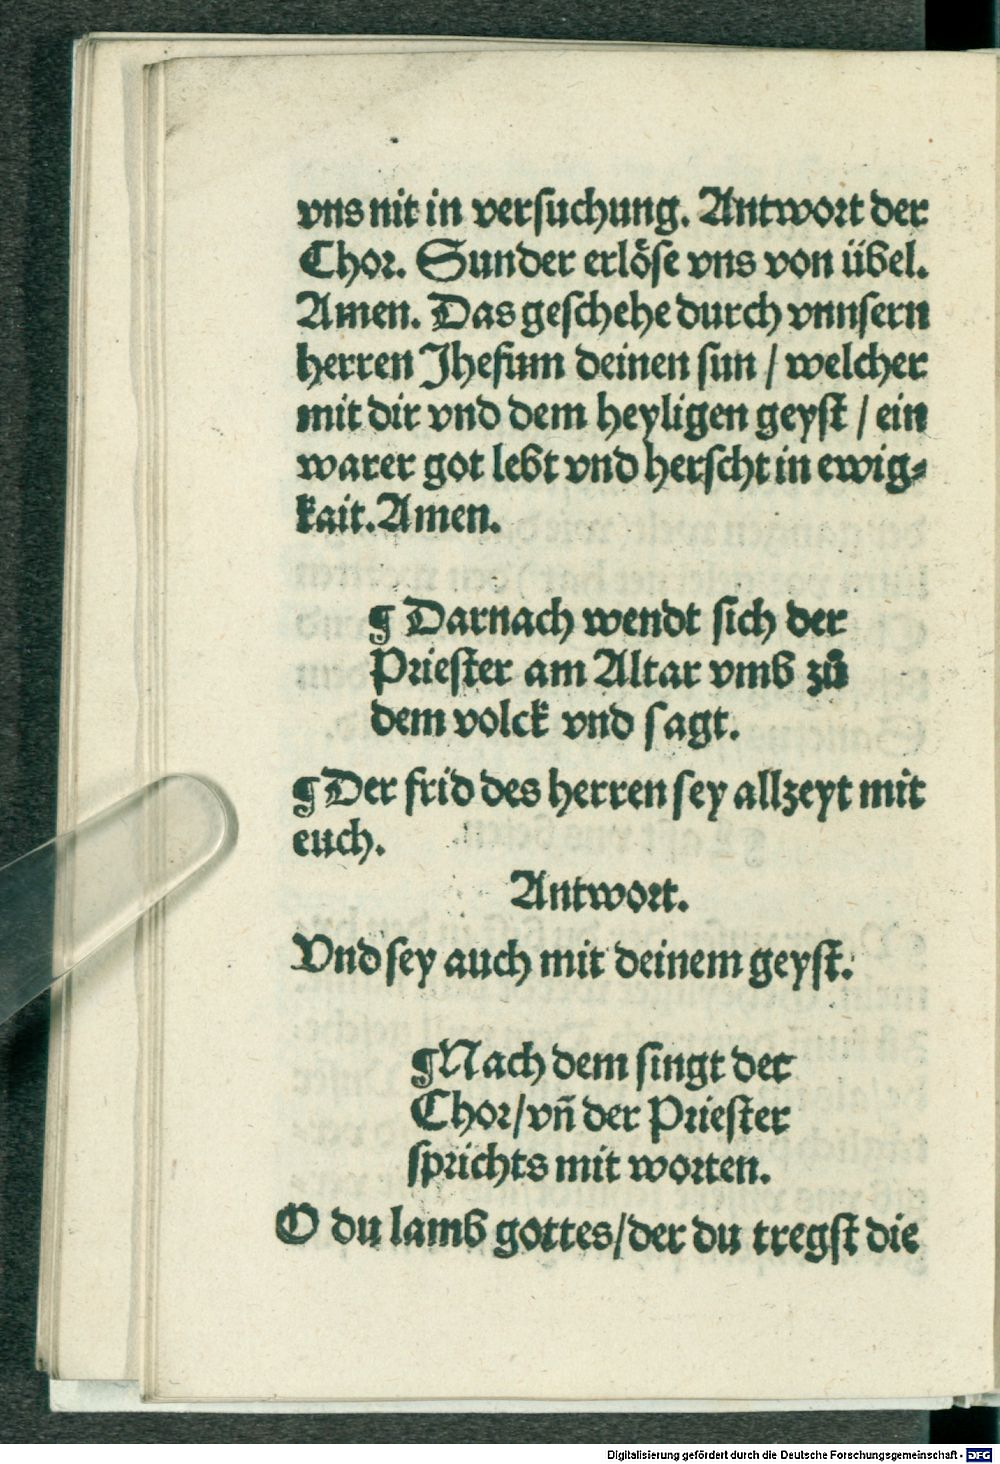 vns nit in versuchung. Antwort der
Chor. Sunder erlöse vns von übel.
Amen. Das geschehe durch vnnsern
herren Jhesum deinen sun / welcher
mit dir vnd dem heyligen geyst / ein
warer got lebt vnd herscht in ewig⸗
kait. Amen.
¶ Darnach wendt sich der
Priester am Altar vmb zů
dem volck vnd sagt.
¶ Der frid des herren sey allzeyt mit
euch.
Antwort.
Vnd sey auch mit deinem geyst.
¶ Nach dem singt der
Chor/vñ der Priester
sprichts mit worten.
O du lamb gottes/der du tregst die
Digitalisierung gefördert durch die Deutsche Forschungsgemeinschaft - DFG